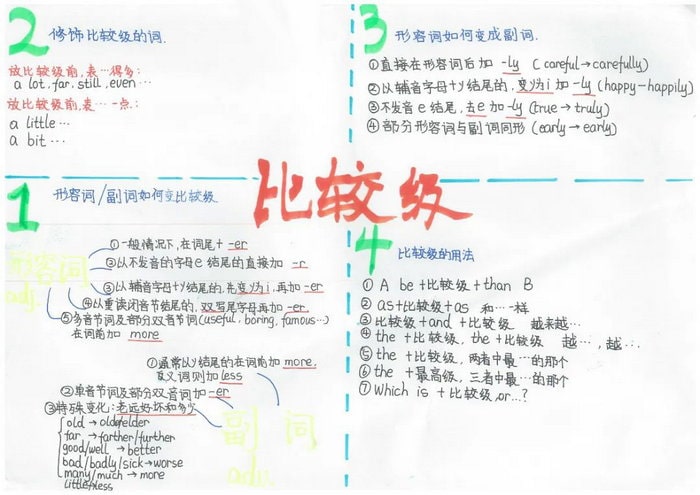 比较级
1 形容词/副词如何变比较级
形容词
adj.
①一般情况下,在词尾+ -er
②以不发音的字母e 结尾的直接加 -r
③以辅音字母+y结尾的,先变为i,再加-er
④以重读闭音节结尾的,双写尾字母再加-er.
⑤多音节词及部分双音节词(useful. boring, famous…)
在词前加 more
副 词
adv.
①通常以y结尾的在词前加more.
反义词则加less
②单音节词及部分双音词加-er
③特殊变化:老远好坏和多少
old → older/elder
far → farther/further
good/well → better
bad/badly/sick→worse
many/much → more
little→less
2 修饰比较级的词.
放比较级前,表…得多:
a lot. far. still. even…
放比较级前,表… 一点:
a little …
a bit …
3 形容词如何变成副词.
①直接在形容词后加 -ly ( careful→carefully)
②以辅音字母+y结尾的,变y为i加-ly (happy-happily)
③不发音e结尾,去e加-ly (true → truly)
④部分形容词与副词同形 (early→early)
4 比较级的用法
① A be +比较级+than B
② as+比较级+as 和…一样
③比较级+and +比较级 越来越…
④ the +比较级, the +比较级 越…,越…
⑤ the +比较级, 两者中最…的那个
⑥ the +最高级, 三者中最…的那个
⑦ Which is +比较级,or…?